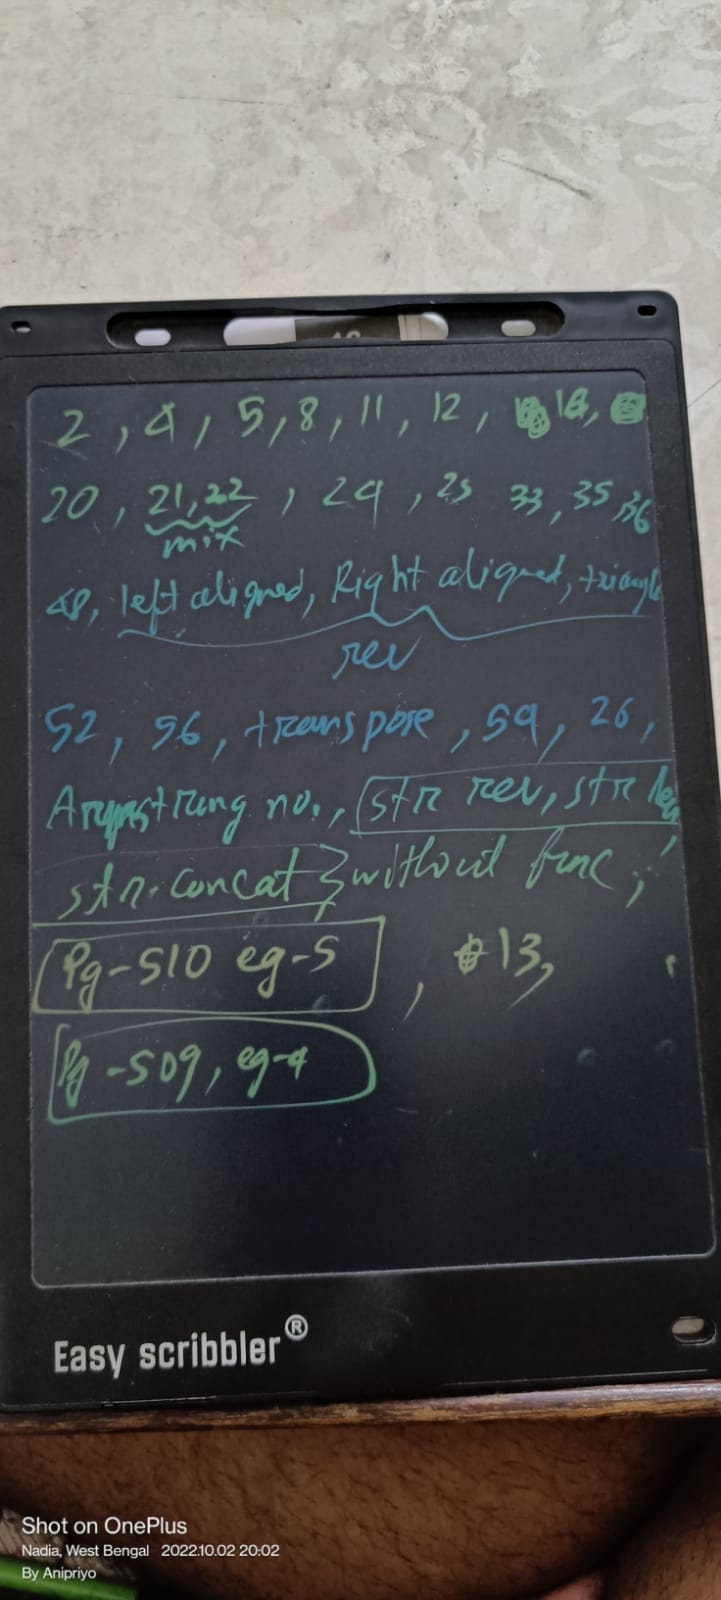 2, 4, 5, 8, 11, 12, 18,
20, 21,22, 24, 25 33, 35, 36
mix
48, left aligned, Right aligned, triangle
rev
52, 56, transpose, 59, 26,
Armstrong no., str rev, str len,
str. concat } without func,
Pg-510 eg-5, 13,
Pg-509, eg-4
Easy scribbler®
Shot on OnePlus
Nadia, West Bengal 2022.10.02 20:02
By Anipriyo